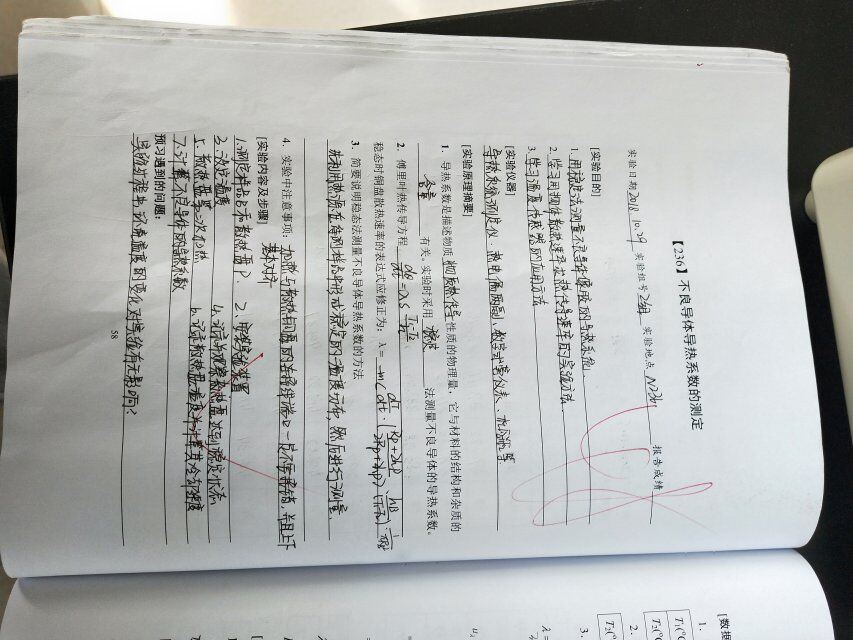 【236】不良导体导热系数的测定
实验日期 2018.10.29 实验组号 2组 实验地点 N236 报告成绩
[实验目的]
1. 用稳态法测量不良导体橡胶的导热系统
2. 学习用物体散热速率求热传导速率的实验方法.
3. 学习温度传感器的应用方法
[实验仪器]
导热系统测定仪、热电偶两副、数字式 仪表、 等
[实验原理摘要]
1. 导热系数是描述物质 物质热传导 性质的物理量,它与材料的结构和杂质的
含量 有关。实验时采用 稳定 法测量不良导体的导热系数。
2. 傅里叶热传导方程 dθ/dt=λS (T₁-T₂)/h
稳态时铜盘散热速率的表达式应修正为:λ= mc dT/dt · (Rp+2hp)/(2Rp+2hp) · hB/(T₁-T₂) ·
3. 简要说明稳态法测量不良导体导热系数的方法
先利用热源在待测样品中形成稳定的温度分布, 然后进行测量.
4. 实验中注意事项:加热与散热铜盘的连接线端口一定不要接错, 并且上下
基本对齐
[实验内容及步骤]
1. 测定样品B和散热盘P. 2. 安装实验装置
3. 设定温度 4. 记录并观察散热盘达到稳定状态
5. 散热盘第二次加热 6. 记录散热盘温度并计算其冷却速度
7. 计算不良导体的导热系数
预习遇到的问题:
实验过程中, 环境温度的变化对实验有无影响?
58
[数据
1.
T₁(°C
T₂(°C
2.
T₂(°C
3.
λ =